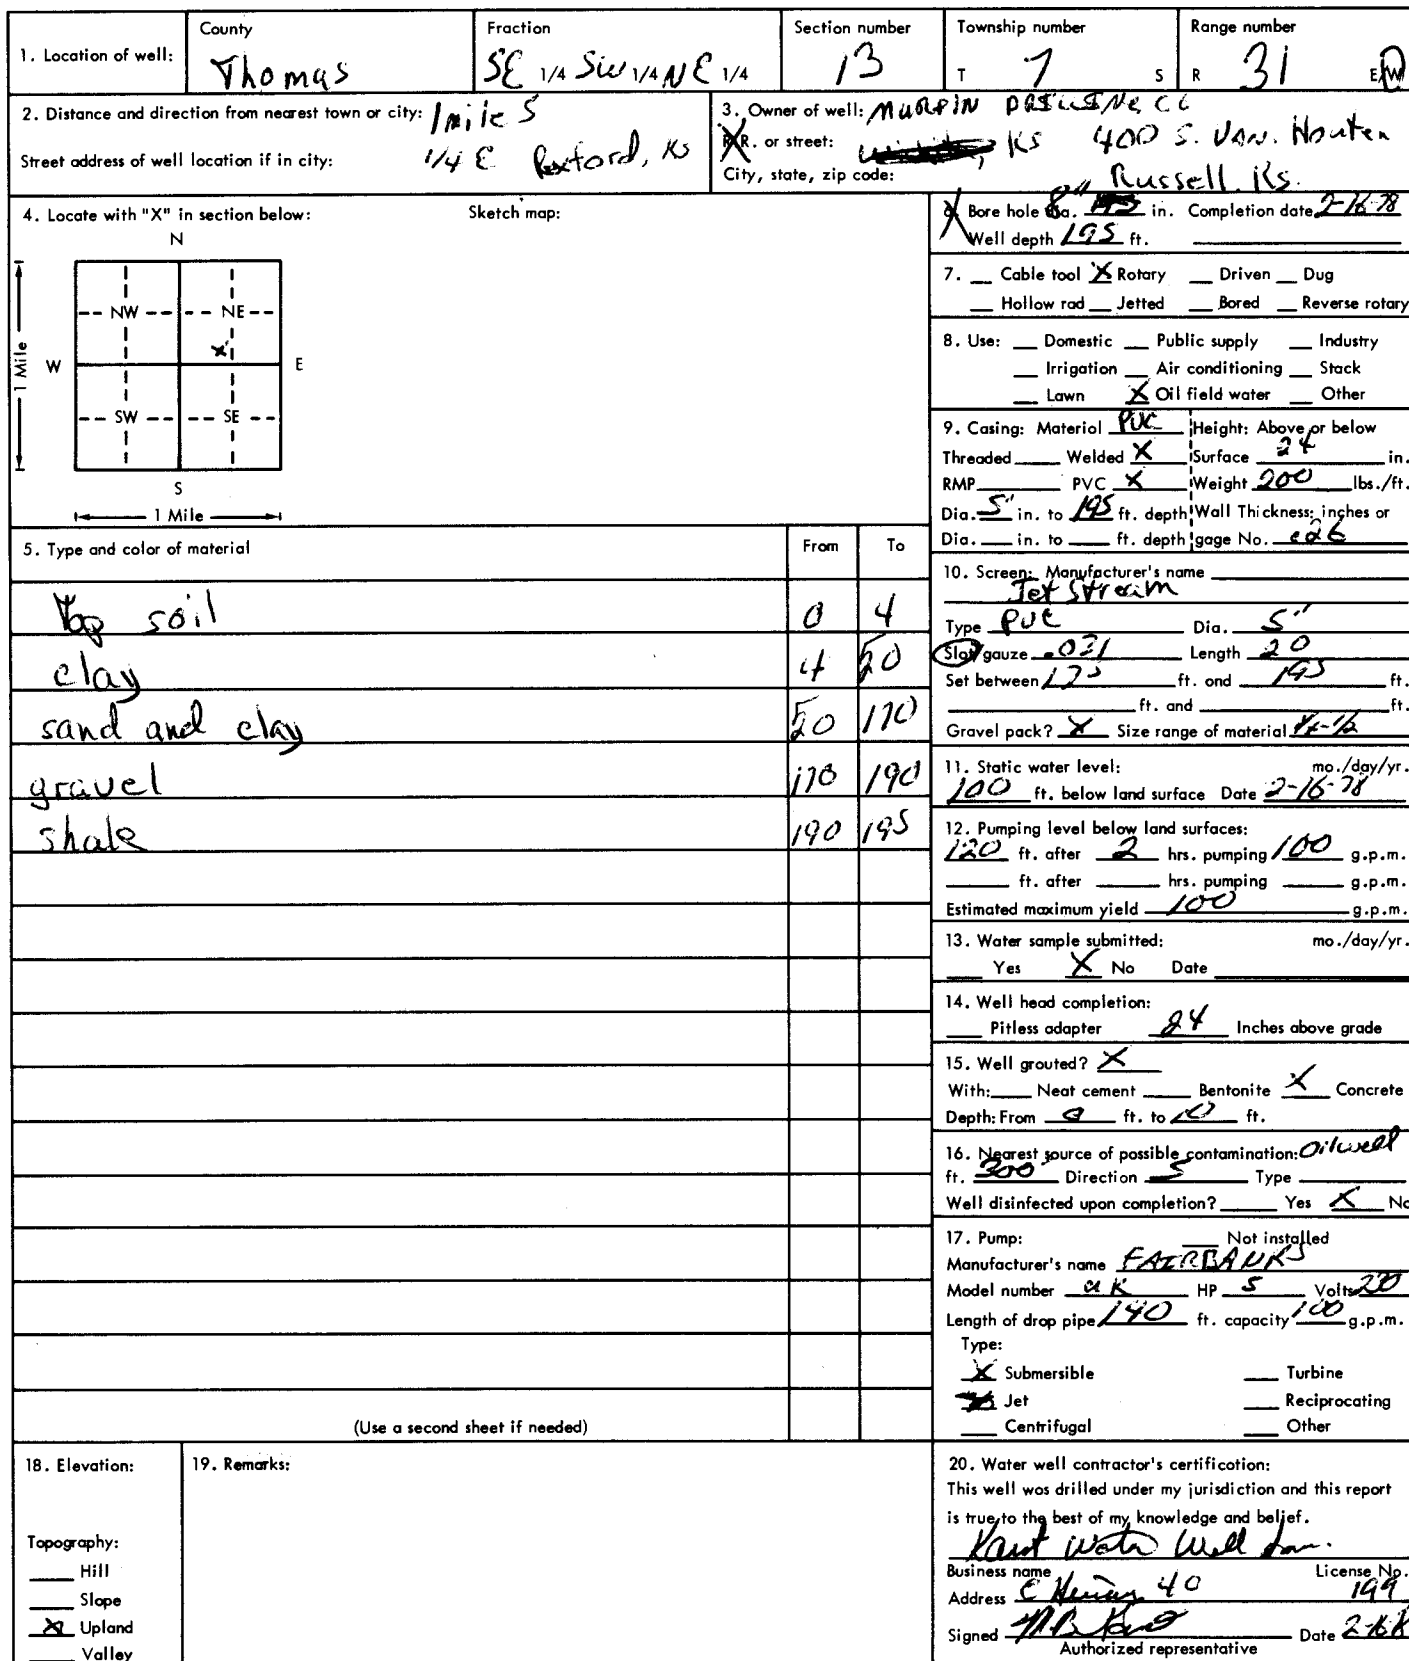 1. Location of well:
County
Thomas
Fraction
SE 1/4 SW 1/4 NE 1/4
Section number
13
Township number
T 7 S
Range number
R 31 E W
2. Distance and direction from nearest town or city: 1 mile S
Street address of well location if in city: 1/4 E Rexford, Ks
3. Owner of well: MURFIN DRILLING CO
R.R. or street: Ks 400 S. Van. Houten
City, state, zip code: Russell Ks.
4. Locate with "X" in section below: Sketch map:
N
NW NE
X
W E
SW SE
S
1 Mile
1 Mile
5. Type and color of material From To
Top soil 0 4
clay 4 50
sand and clay 50 170
gravel 170 190
shale 190 195
(Use a second sheet if needed)
6. Bore hole dia. 8" in. Completion date 2-16-78
Well depth 195 ft.
7. Cable tool X Rotary Driven Dug
Hollow rod Jetted Bored Reverse rotary
8. Use: Domestic Public supply Industry
Irrigation Air conditioning Stock
Lawn X Oil field water Other
9. Casing: Material PVC Height: Above or below
Threaded Welded X Surface 24 in.
RMP PVC X Weight 200 lbs./ft.
Dia. 5" in. to 195 ft. depth Wall Thickness: inches or
Dia. in. to ft. depth gage No. .026
10. Screen: Manufacturer's name
Jet Stream
Type PVC Dia. 5"
Slot/gauze .031 Length 20
Set between 175 ft. and 195 ft.
ft. and ft.
Gravel pack? X Size range of material 1/4-1/2
11. Static water level: mo./day/yr.
100 ft. below land surface Date 2-16-78
12. Pumping level below land surfaces:
120 ft. after 2 hrs. pumping 100 g.p.m.
ft. after hrs. pumping g.p.m.
Estimated maximum yield 100 g.p.m.
13. Water sample submitted: mo./day/yr.
Yes X No Date
14. Well head completion:
Pitless adapter 24 Inches above grade
15. Well grouted? X
With: Neat cement Bentonite X Concrete
Depth: From 0 ft. to 10 ft.
16. Nearest source of possible contamination: Oilwell
ft. 300 Direction S Type
Well disinfected upon completion? Yes X No
17. Pump: Not installed
Manufacturer's name FAIRBANKS
Model number HP 5 Volts 230
Length of drop pipe 140 ft. capacity 100 g.p.m.
Type:
X Submersible Turbine
Jet Reciprocating
Centrifugal Other
18. Elevation:
Topography:
Hill
Slope
X Upland
Valley
19. Remarks:
20. Water well contractor's certification:
This well was drilled under my jurisdiction and this report
is true to the best of my knowledge and belief.
Water Well
Business name License No.
Address 40 199
Signed Date
Authorized representative